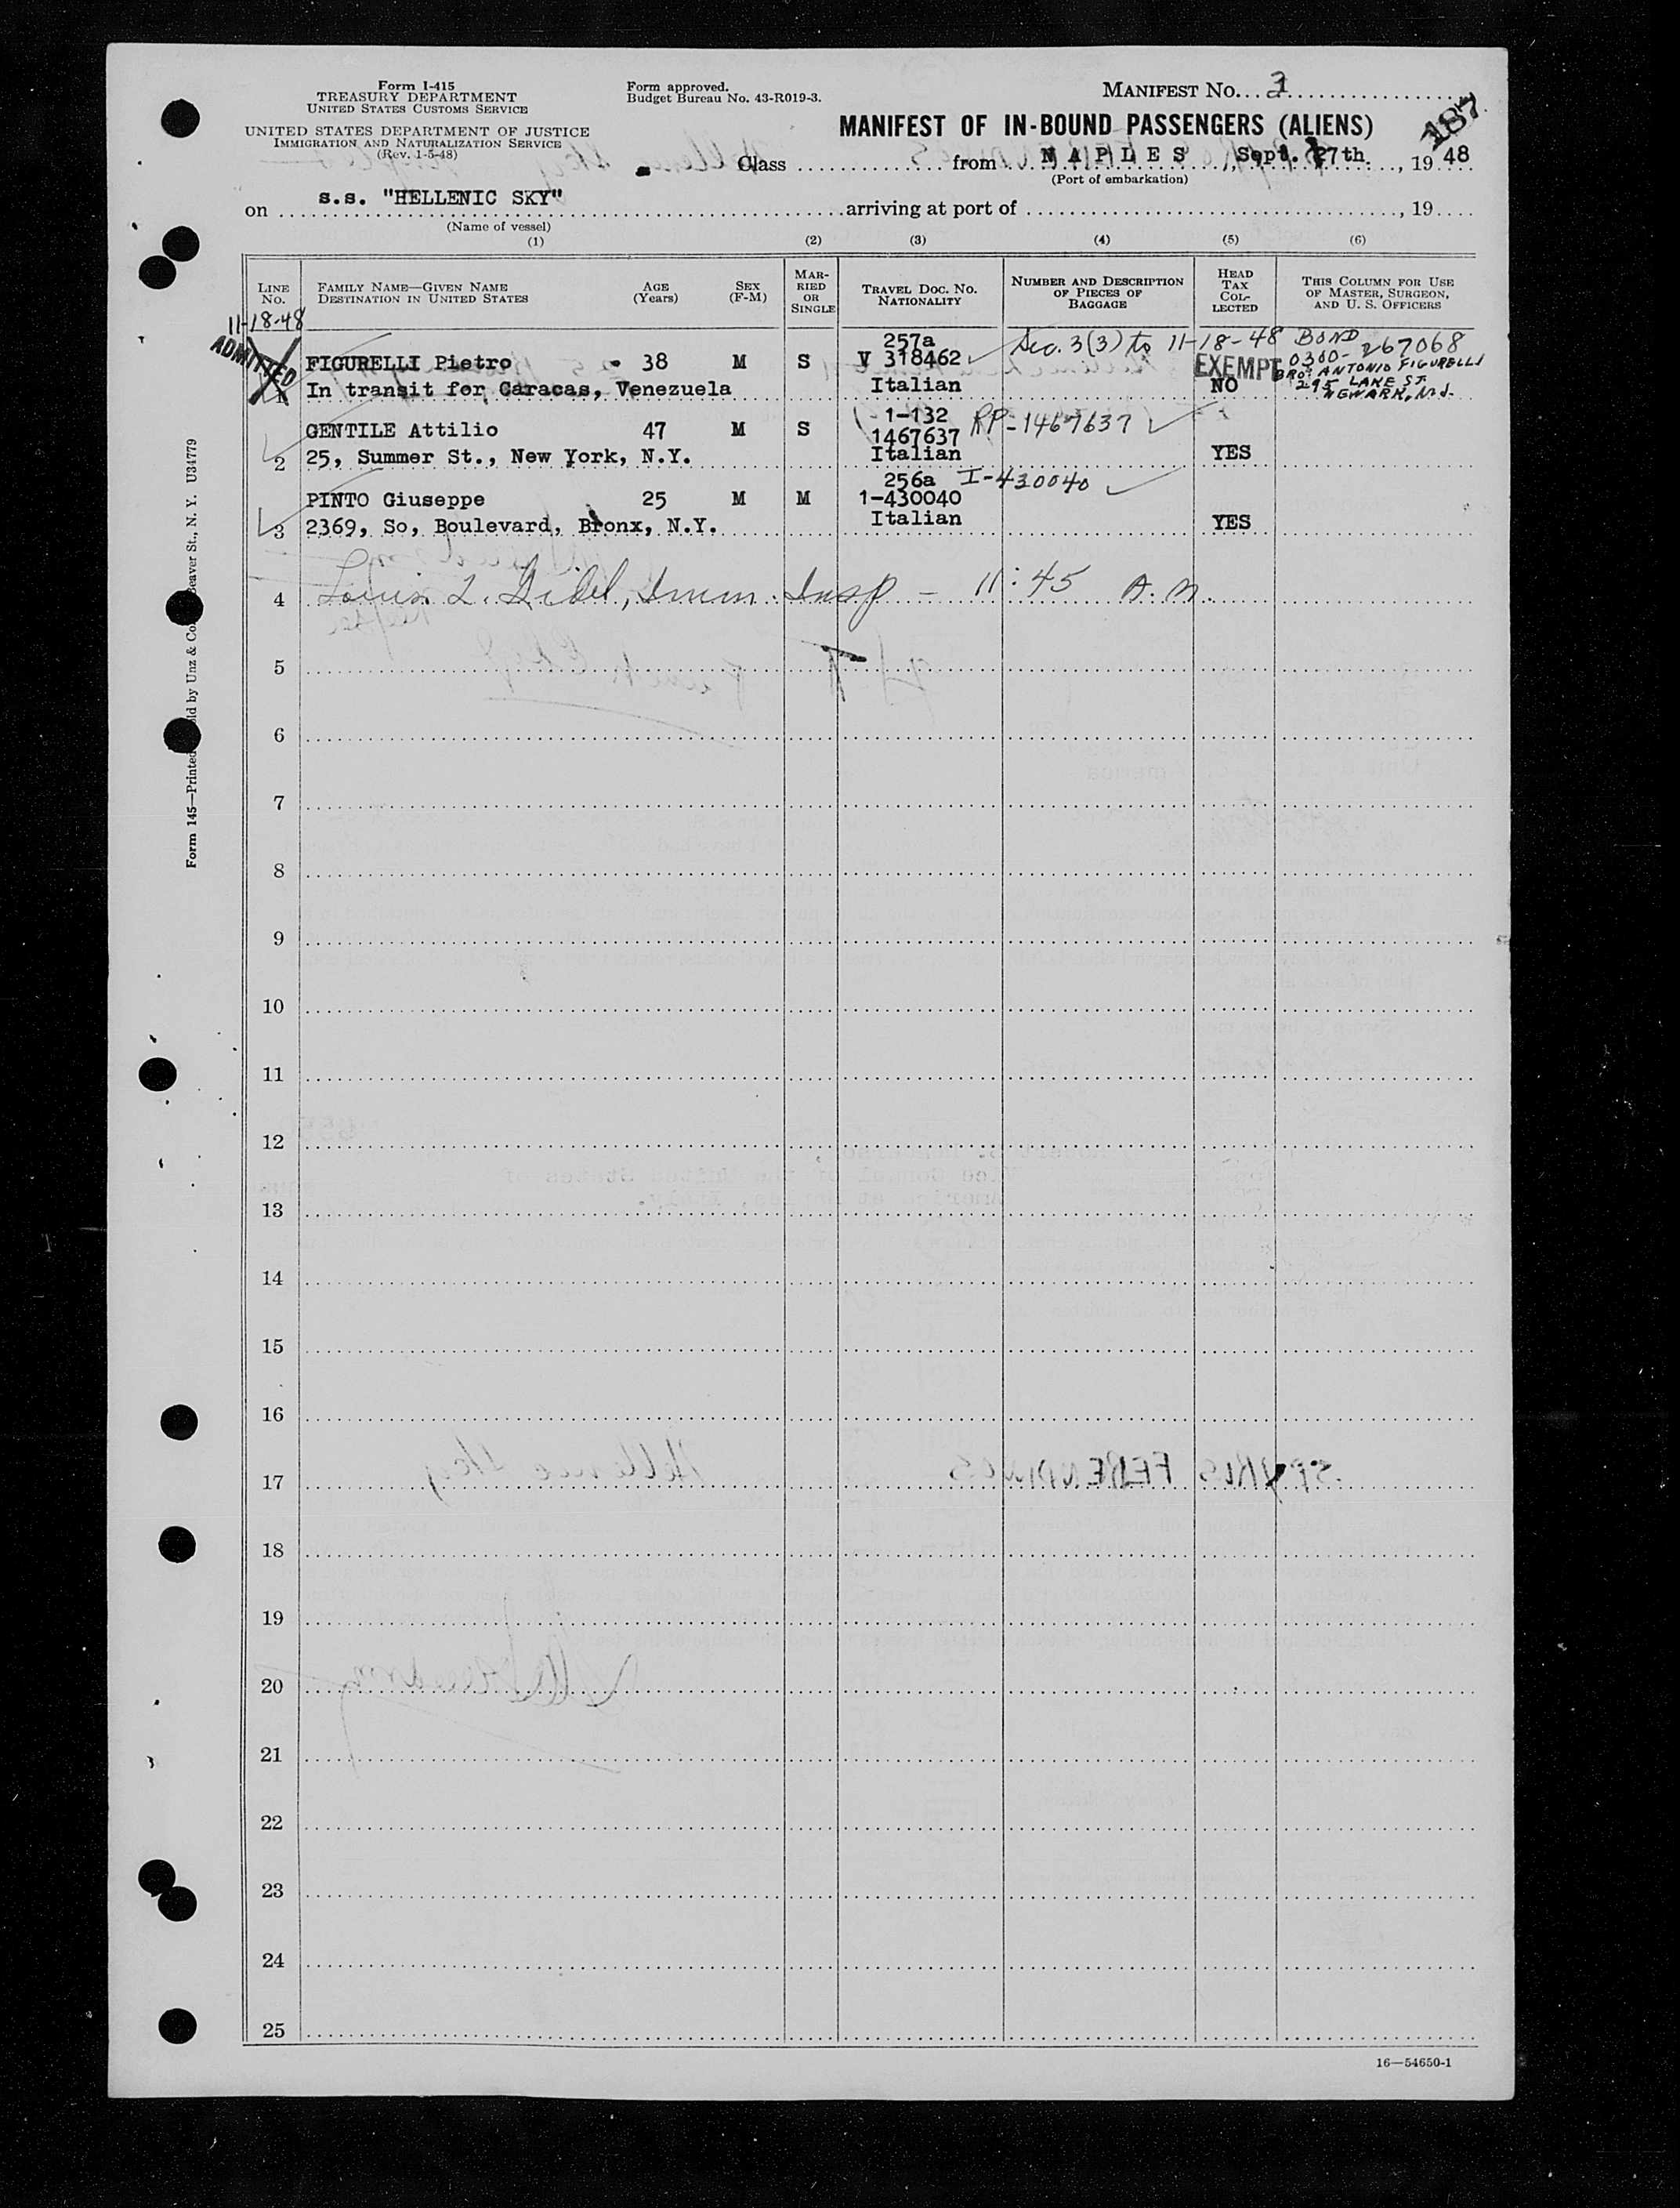 Form I-415
TREASURY DEPARTMENT
UNITED STATES CUSTOMS SERVICE
UNITED STATES DEPARTMENT OF JUSTICE
IMMIGRATION AND NATURALIZATION SERVICE
(Rev. 1-5-48)
Form approved.
Budget Bureau No. 43-R019-3.
MANIFEST NO.
187
MANIFEST OF IN-BOUND PASSENGERS (ALIENS)
Class from NAPLES, Sept. 27th, 1948
(Port of embarkation)
on s.s. "HELLENIC SKY" arriving at port of , 19
(Name of vessel)
(1) (2) (3) (4) (5) (6)
LINE NO. FAMILY NAME—GIVEN NAME DESTINATION IN UNITED STATES AGE (Years) SEX (F-M) MARRIED OR SINGLE TRAVEL DOC. NO. NATIONALITY NUMBER AND DESCRIPTION OF PIECES OF BAGGAGE HEAD TAX COLLECTED THIS COLUMN FOR USE OF MASTER, SURGEON, AND U. S. OFFICERS
11-18-48
ADMITTED
257a
FIGURELLI Pietro 38 M S V 318462 Sec. 3(3) to 11-18-48 BOND
EXEMPT 0300-267068
BRO: ANTONIO FIGURELLI
1 In transit for Caracas, Venezuela Italian NO 295 LAKE ST.
NEWARK, N.J.
1-132
GENTILE Attilio 47 M S 1467637 RP-1467637
2 25, Summer St., New York, N.Y. Italian YES
256a I-430040
PINTO Giuseppe 25 M M 1-430040
3 2369, So, Boulevard, Bronx, N.Y. Italian YES
4 Louis L. Imm. Insp - 11:45 A.M.
5
6
7
8
9
10
11
12
13
14
15
16
17
18
19
20
21
22
23
24
25
16—54650-1
Form 145—Printed ld by Unz & Co eaver St., N. Y. U34779